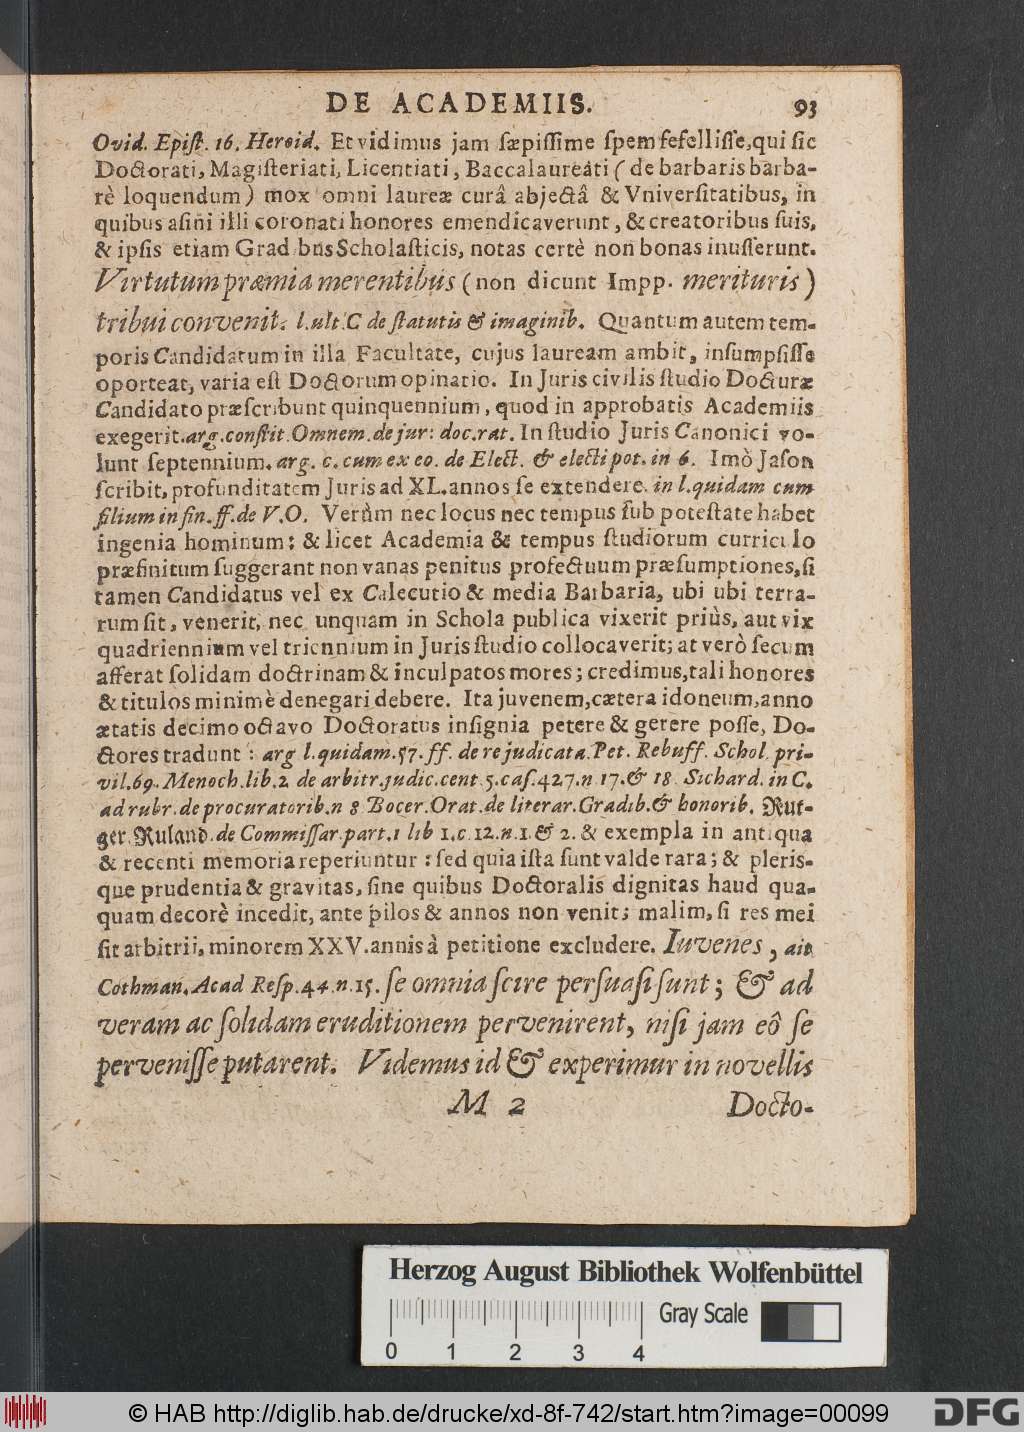 DE ACADEMIIS. 93
Ovid. Epiſt. 16. Heroid. Et vidimus jam ſæpiſſime ſpem fefelliſſe, qui ſic
Doctorati, Magiſteriati, Licentiati, Baccalaureati ( de barbaris barba-
rè loquendum ) mox omni laureæ curâ abjectâ & Vniverſitatibus, in
quibus aſini illi coronati honores emendicaverunt, & creatoribus ſuis,
& ipſis etiam Gradibus Scholaſticis, notas certè non bonas inuſſerunt.
Virtutum præmia merentibus ( non dicunt Impp. merituris )
tribui convenit. l. ult. C de ſtatutis & imaginib. Quantum autem tem-
poris Candidatum in illa Facultate, cujus lauream ambit, inſumpſiſſe
oporteat, varia eſt Doctorum opinatio. In Juris civilis ſtudio Docturæ
Candidato præſcribunt quinquennium, quod in approbatis Academiis
exegerit. arg. conſtit. Omnem. de jur: doc. rat. In ſtudio Juris Canonici vo-
lunt ſeptennium. arg. c. cum ex eo. de Elect. & electi pot. in 6. Imò Jaſon
ſcribit, profunditatem Juris ad XL. annos ſe extendere. in l. quidam cum
filium in fin. ff. de V. O. Verùm nec locus nec tempus ſub poteſtate habet
ingenia hominum: & licet Academia & tempus ſtudiorum curriculo
præfinitum ſuggerant non vanas penitus profectuum præſumptiones, ſi
tamen Candidatus vel ex Calecutio & media Barbaria, ubi ubi terra-
rum ſit, venerit, nec unquam in Schola publica vixerit priùs, aut vix
quadriennium vel triennium in Juris ſtudio collocaverit; at verò ſecum
afferat ſolidam doctrinam & inculpatos mores; credimus, tali honores
& titulos minimè denegari debere. Ita juvenem, cætera idoneum, anno
ætatis decimo octavo Doctoratus inſignia petere & gerere poſſe, Do-
ctores tradunt : arg l. quidam. 57. ff. de re judicata. Pet. Rebuff. Schol. pri-
vil. 69. Menoch. lib. 2 de arbitr. judic. cent. 5. caſ. 427. n. 17. & 18. Sichard. in C.
ad rubr. de procuratorib. n 8 Bocer. Orat. de literar. Gradib. & honorib. Rut-
ger. Ruland. de Commiſſar. part. 1 lib 1. c. 12. n. 1. & 2. & exempla in antiqua
& recenti memoria reperiuntur : ſed quia iſta ſunt valde rara; & pleris-
que prudentia & gravitas, ſine quibus Doctoralis dignitas haud qua-
quam decorè incedit, ante pilos & annos non venit; malim, ſi res mei
ſit arbitrii, minorem XXV. annis à petitione excludere. Iuvenes, ait
Cothman. Acad Reſp. 44. n. 15. ſe omnia ſcire perſuaſi ſunt; & ad
veram ac ſolidam eruditionem pervenirent, niſi jam eô ſe
perveniſſe putarent. Videmus id & experimur in novellis
M 2 Docto-
Herzog August Bibliothek Wolfenbüttel
Gray Scale
0 1 2 3 4
© HAB http://diglib.hab.de/drucke/xd-8f-742/start.htm?image=00099
DFG